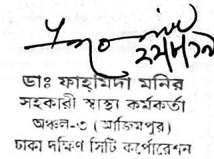 ডাঃ ফাহমিদা মনির
সহকারী স্বাস্থ্য কর্মকর্তা
অঞ্চল-৩ (আজিমপুর)
ঢাকা দক্ষিণ সিটি কর্পোরেশন